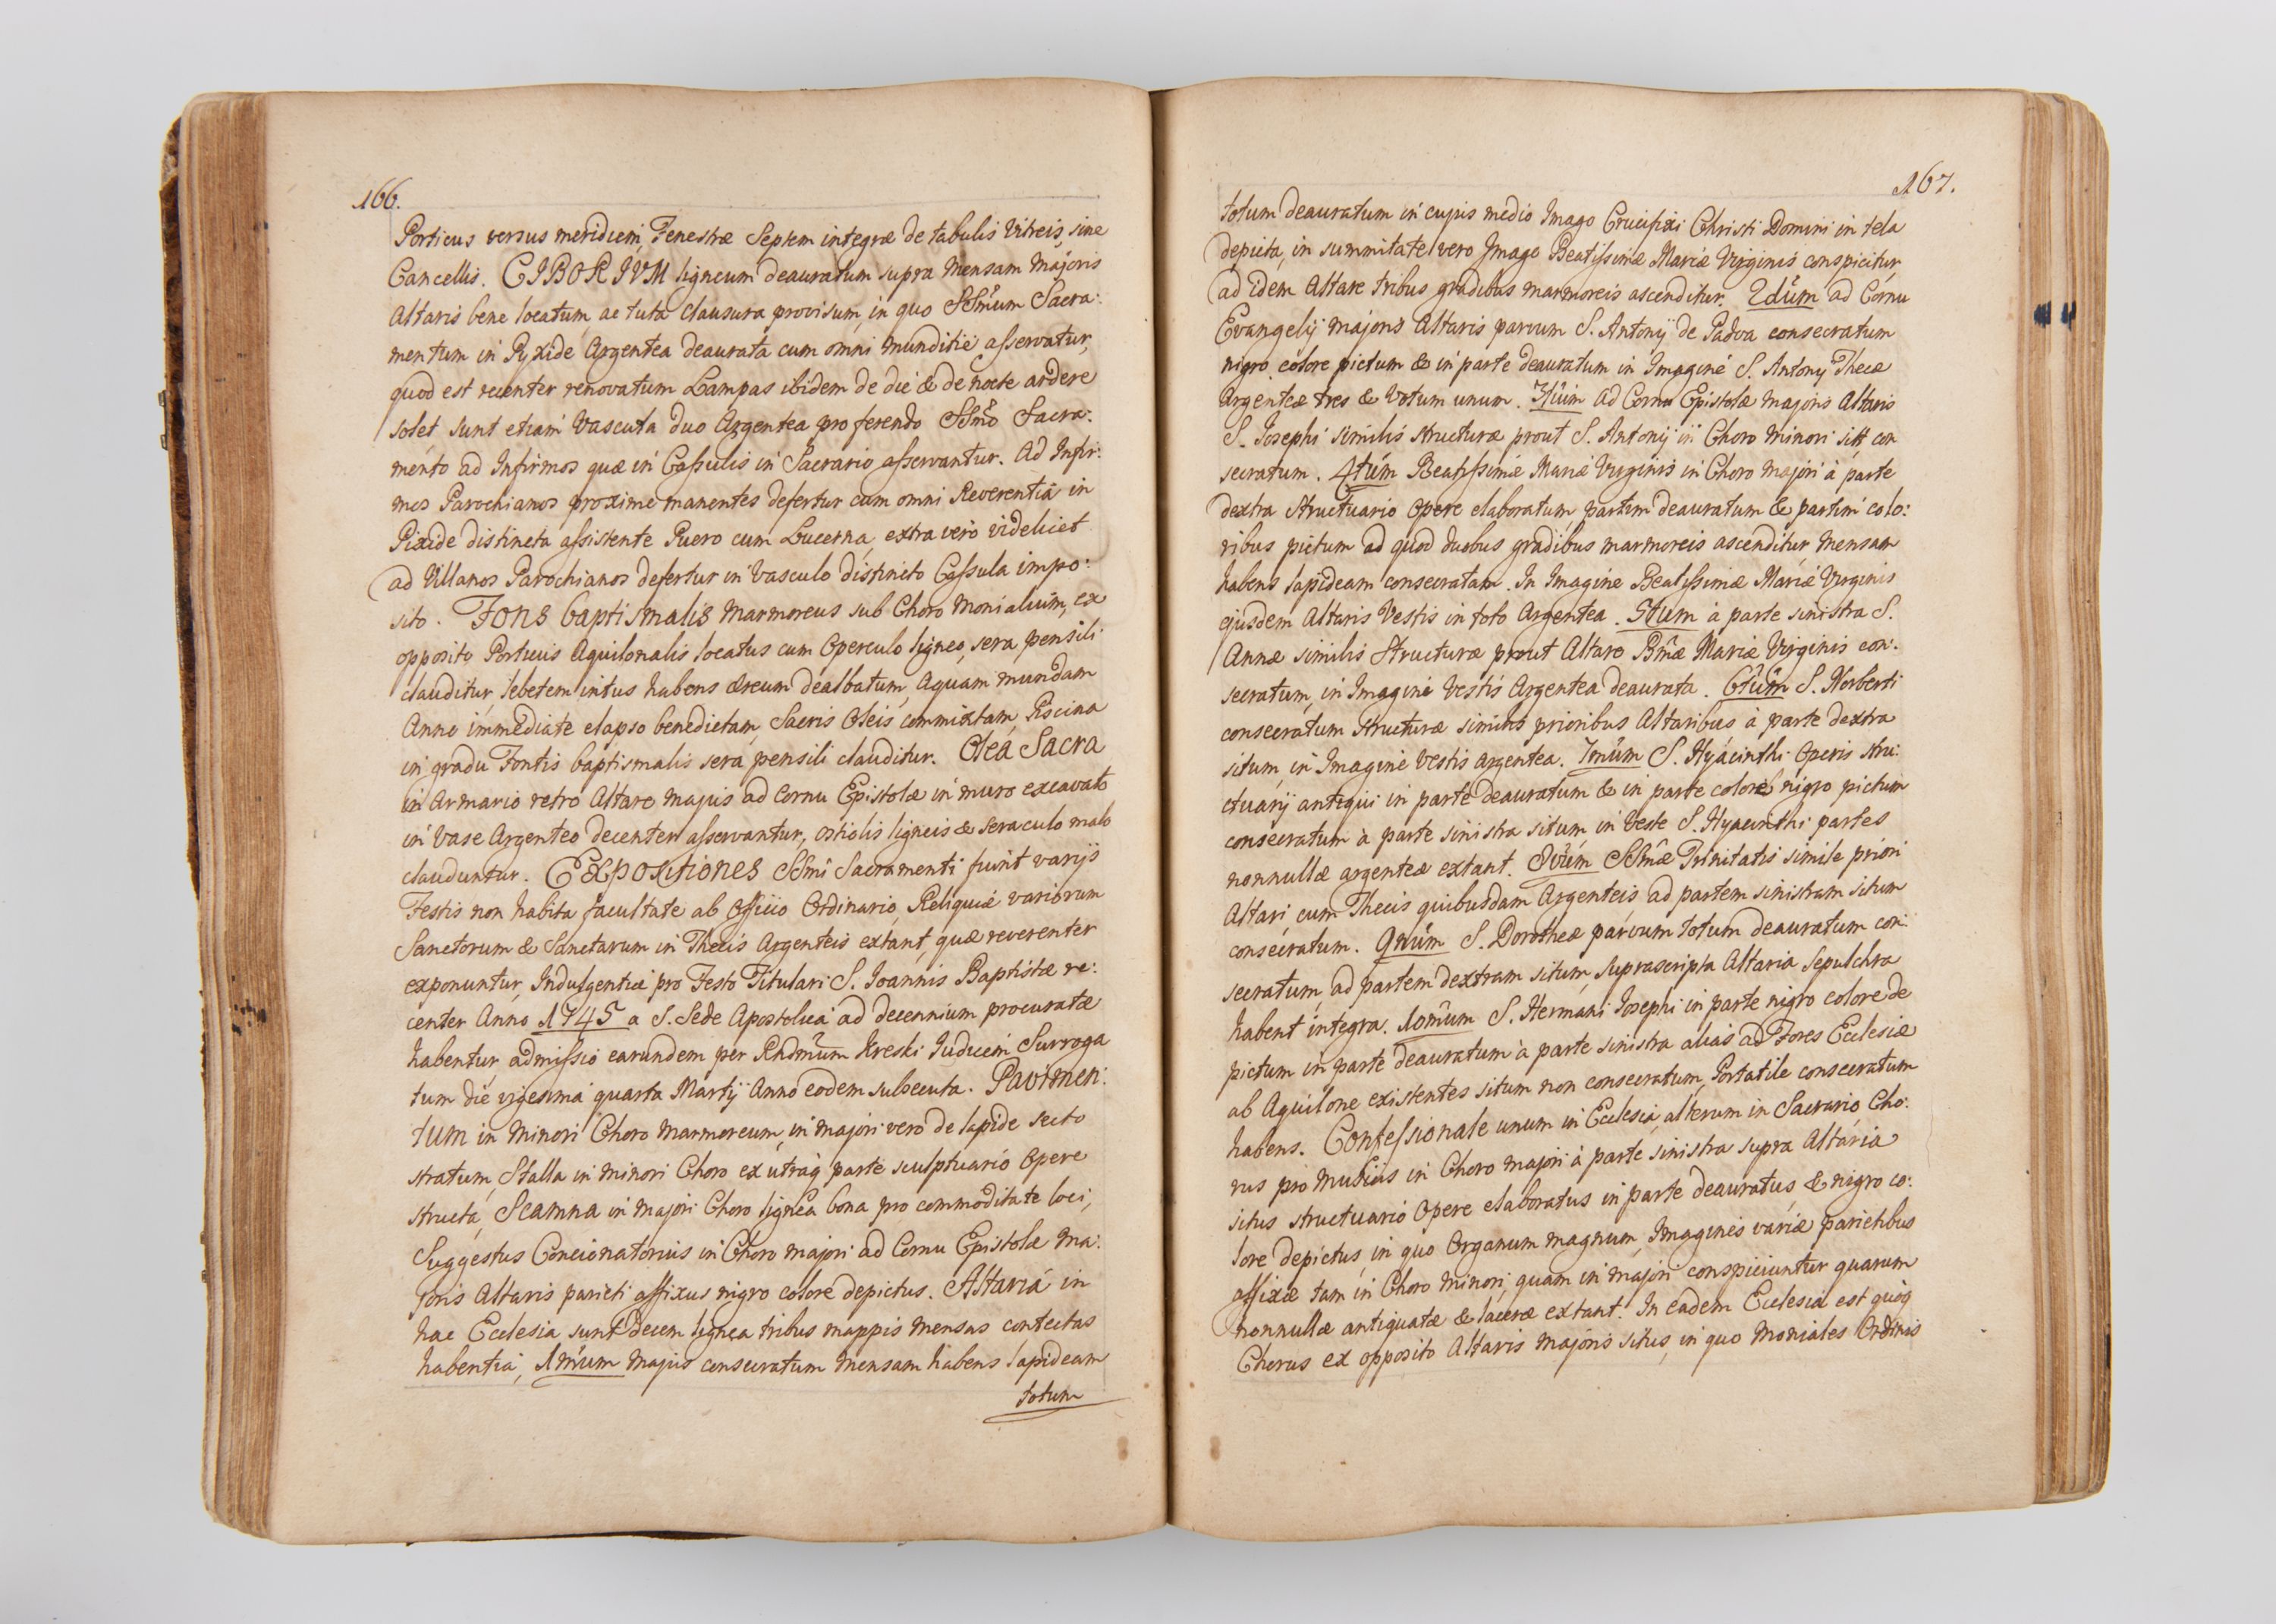 166.
Porticus versus meridiem, Fenestræ Septem integræ de tabulis Vitreis, sine
Cancellis. CIBORIVM ligneum deauratum supra Mensam Majoris
Altaris bene locatum, ac tuta Clausura provisum, in quo SSmum Sacra:
mentum in Pyxide Argentea deaurata cum omni munditie asservatur,
quod est recenter renovatum Lampas ibidem de die & de nocte ardere
solet, sunt etiam Vascula duo Argentea pro ferendo SSmo Sacra:
mento ad Infirmos quæ in Cassulis in Sacrario asservantur. Ad Infir:
mos Parochianos proxime manentes defertur cum omni Reverentia in
Pixide distincta assistente Puero cum Lucerna, extra vero videlicet
ad Villanos Parochianos defertur in Vasculo distincto Cassula impo:
sito. Fons baptismalis Marmoreus sub Choro Monialium, ex
opposito Porticus Aquilonalis locatus cum Operculo ligneo, sera pensili
clauditur, lebetem intus habens æreum dealbatum, Aquam mundam
Anno immediate elapso benedictam, Sacris Oleis commixtam, Piscina
in gradu Fontis baptismalis sera pensili clauditur. Olea Sacra
in Armario retro Altare majus ad Cornu Epistolæ in muro excavato
in Vase Argenteo decenter asservantur, ostiolis ligneis & seraculo malo
clauduntur. Expositiones SSmi Sacramenti fiunt varijs
Festis non habita facultate ab Officio Ordinario, Reliquiæ variorum
Sanctorum & Sanctarum in Thecis Argenteis extant, quæ reverenter
exponuntur, Indulgentiæ pro Festo Titulari S. Joannis Baptistæ re:
center Anno 1745 a S. Sede Apostolica ad decennium procuratæ
habentur, admissio earundem per Rndmum Kreski Judicem Surroga
tum die vigesima quarta Martij Anno eodem subsecuta. Pavimen:
tum in Minori Choro Marmoreum, in majori vero de lapide secto
stratum, Stalla in minori Choro ex utraq parte sculptuario Opere
structa, Scamna in majori Choro lignea bona pro commoditate loci,
Suggestus Concionatorius in Choro majori ad Cornu Epistolæ Ma:
joris Altaris parieti affixus nigro colore depictus. Altaria in
hac Ecclesia sunt Decem lignea tribus mappis Mensas contectas
habentia, 1mum majus consecratum Mensam habens lapideam
totum
167.
totum deauratum in cujus medio Imago Crucifixi Christi Domini in tela
depicta, in summitate vero Imago Beatissimæ Mariæ Virginis conspicitur,
ad idem Altare tribus gradibus marmoreis ascenditur. 2dum ad Cornu
Evangelij majoris Altaris parvum S. Antonij de Padva consecratum
nigro colore pictum & in parte deauratum in Imagine S. Antony Thecæ
Argenteæ tres & Votum unum. 3tium ad Cornu Epistolæ majoris Altaris
S. Josephi similis structuræ prout S. Antonij in Choro Minori con
secratum. 4tum Beatissimæ Mariæ Virginis in Choro majori à parte
dextra Structuario Opere elaboratum partim deauratum & partim colo:
ribus pictum ad quod duobus gradibus marmoreis ascenditur Mensam
habens lapideam consecratam. In Imagine Beatissimæ Mariæ Virginis
ejusdem Altaris Vestis in toto Argentea. 5tum à parte sinistra S.
Annæ similis Structuræ prout Altare Bmæ Mariæ Virginis con:
secratum, in Imagine Vestis Argentea deaurata. 6tum S. Norberti
consecratum structuræ similis prioribus Altaribus à parte dextra
situm, in Imagine Vestis Argentea. 7mum S. Hyacinthi Operis stru:
ctuarij antiqui in parte deauratum & in parte colore nigro pictum
consecratum à parte sinistra situm in Veste S. Hyacinthi partes
nonnullæ argenteæ extant. 8vum SSmæ Trinitatis simile priori
Altari, cum Thecis quibusdam Argenteis ad partem sinistram situm
consecratum. 9num S. Dorotheæ parvum totum deauratum con:
secratum, ad partem dextram situm, suprascripta Altaria Sepulchra
habent integra. 10mum S. Hermani Josephi in parte nigro colore de
pictum in parte deauratum à parte sinistra alias ad Fores Ecclesiæ
ab Aquilone existentes situm non consecratum, Portatile consecratum
habens. Confessionale unum in Ecclesia, alterum in Sacrario, Cho:
rus pro Musicis in Choro majori à parte sinistra supra Altaria
situs structuario Opere elaboratus in parte deauratus, & nigro co:
lore depictus, in quo Organum magnum, Imagines variæ parietibus
affixæ tam in Choro minori, quam in majori conspiciuntur quarum
nonnullæ antiquatæ & laceræ extant. In eadem Ecclesia est quoq
Chorus ex opposito Altaris majoris situs, in quo Moniales Ordinis